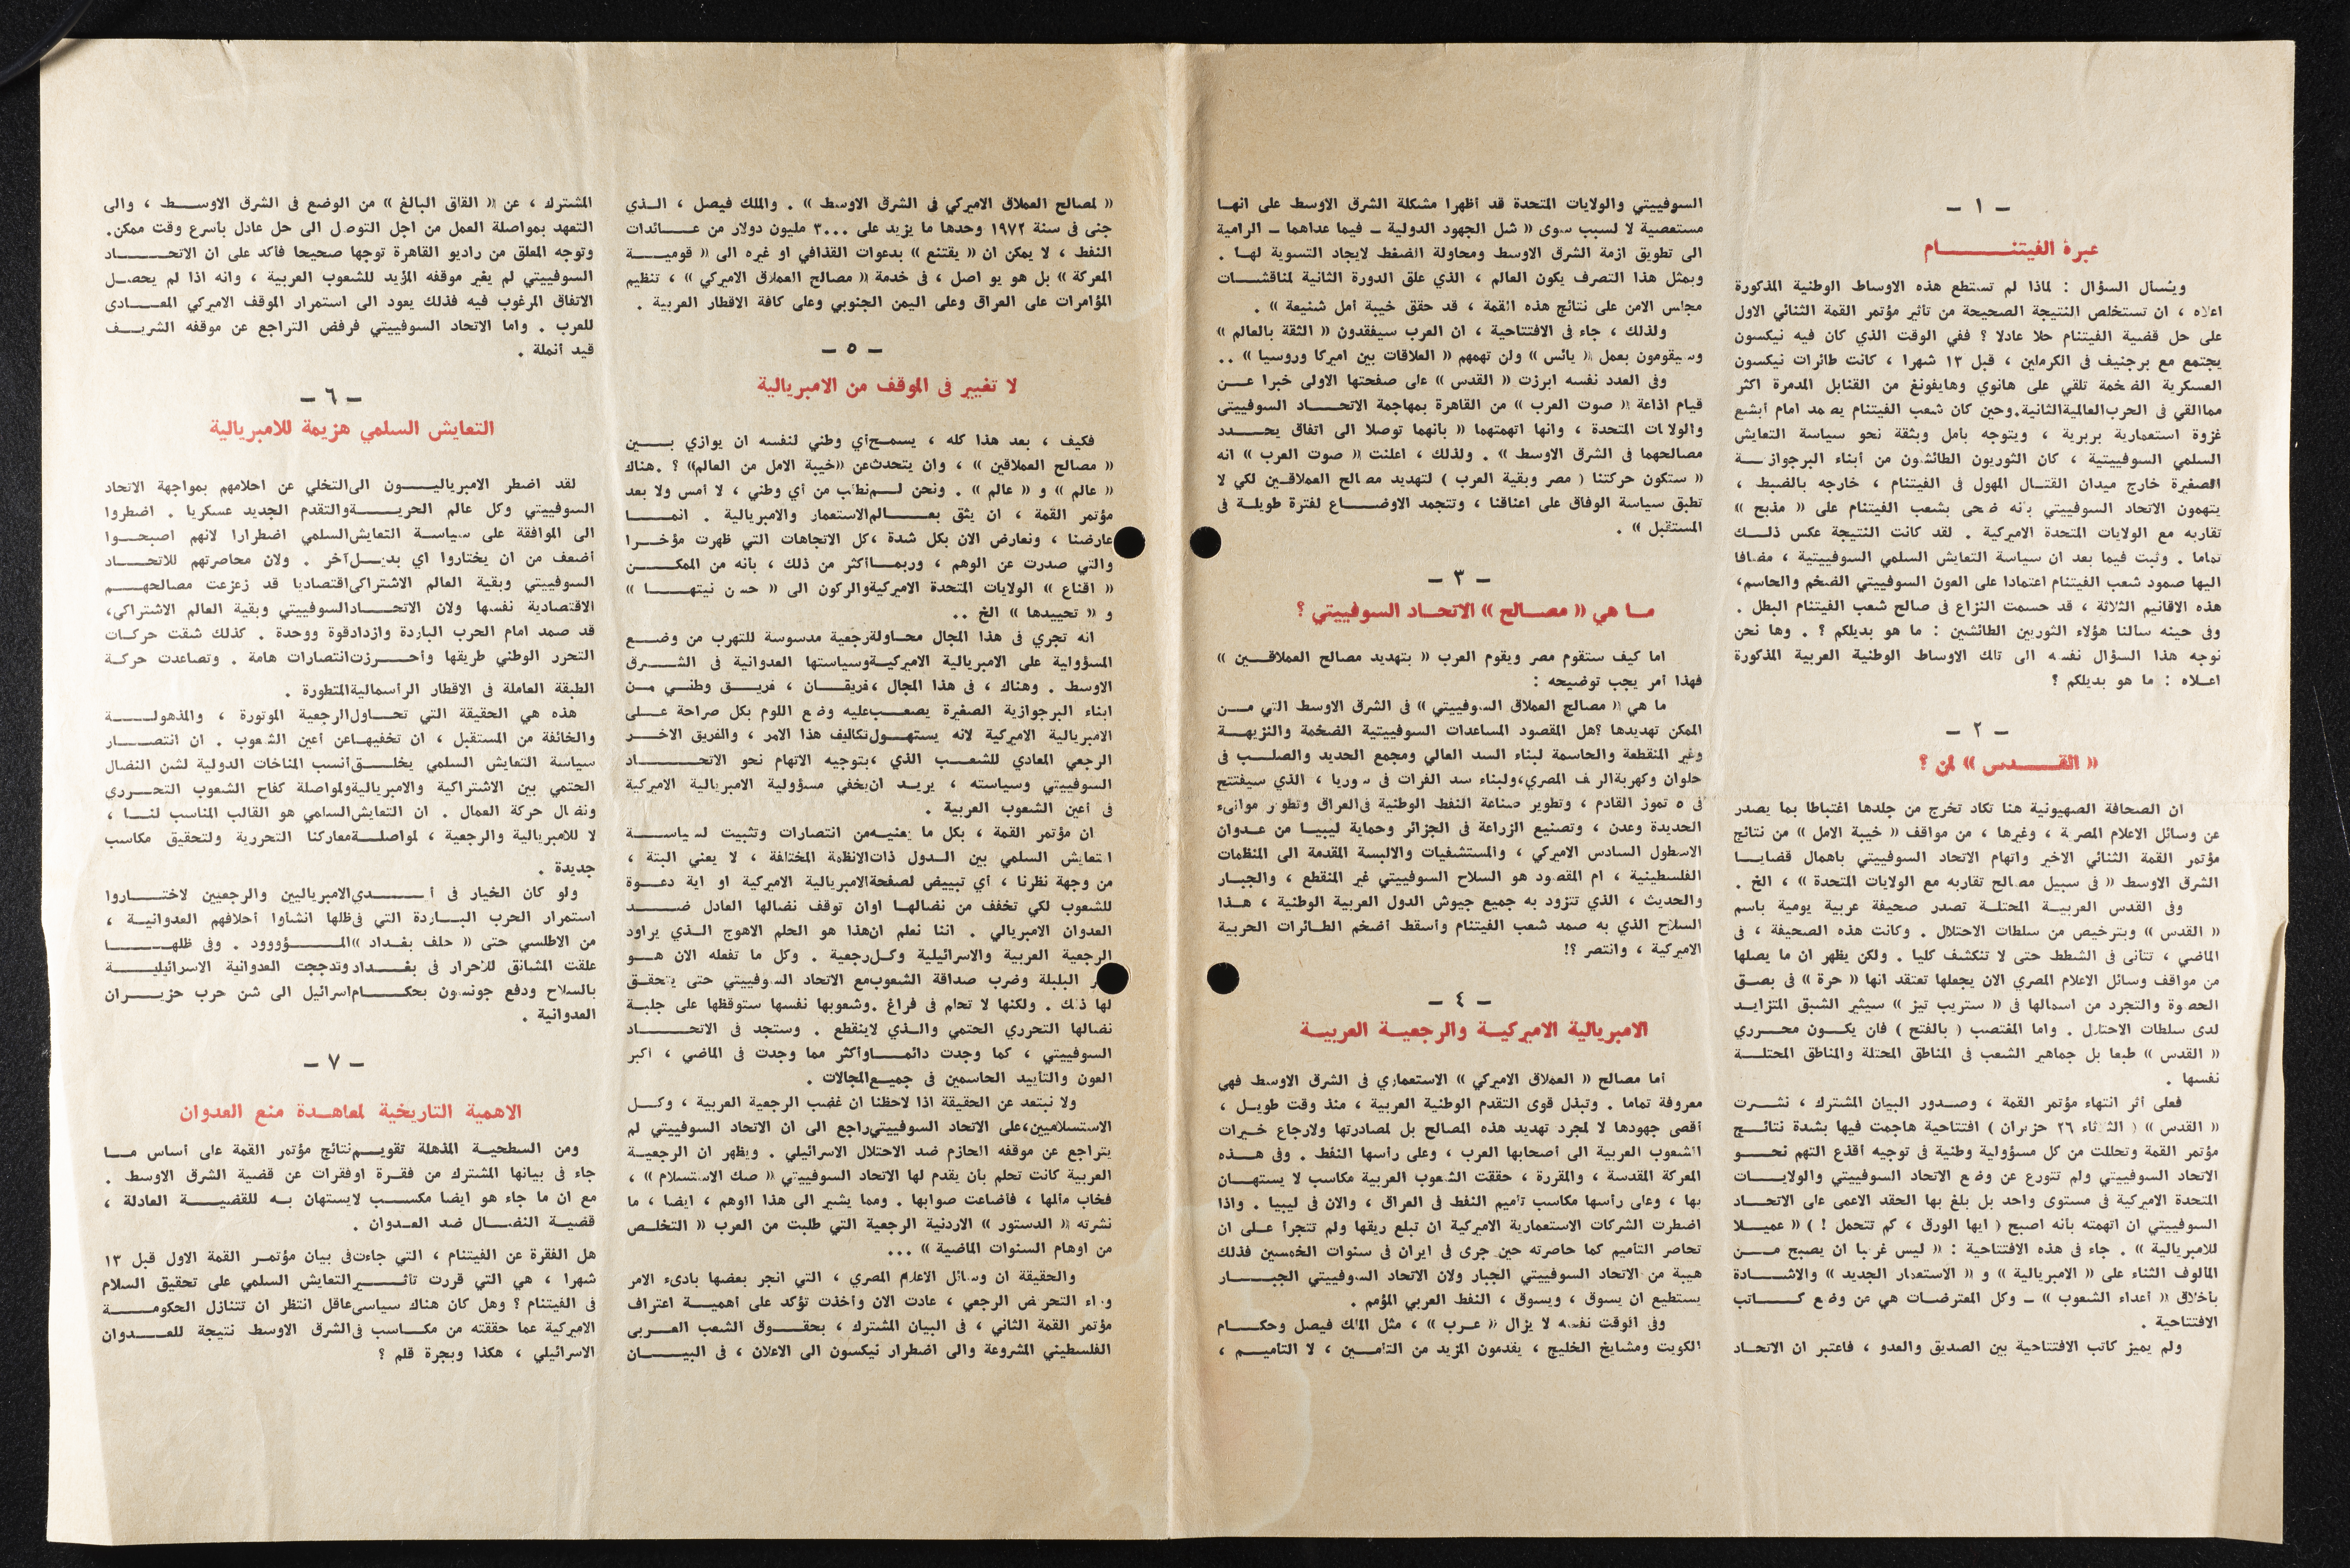 - ١ -
عبرة الفيتنـــــــام
ويسأل السؤال : لماذا لم تستطع هذه الاوساط الوطنية المذكورة
اعلاه ، ان تستخلص النتيجة الصحيحة من تأثير مؤتمر القمة الثنائي الاول
على حل قضية الفيتنام حلا عادلا ؟ ففي الوقت الذي كان فيه نيكسون
يجتمع مع برجنيف في الكرملين ، قبل ١٣ شهرا ، كانت طائرات نيكسون
العسكرية الضخمة تلقي على هانوي وهايفونغ من القنابل المدمرة اكثر
مماالقي في الحرب العالمية الثانية.وحين كان شعب الفيتنام يصمد امام أبشع
غزوة استعمارية بربرية ، ويتوجه بأمل وبثقة نحو سياسة التعايش
السلمي السوفييتية ، كان الثوريون الطائشون من أبناء البرجوازيـــة
الصغيرة خارج ميدان القتـال المهول في الفيتنام ، خارجه بالضبط ،
يتهمون الاتحاد السوفييتي بأنه ضحى بشعب الفيتنام على « مذبح »
تقاربه مع الولايات المتحدة الاميركية . لقد كانت النتيجة عكس ذلــك
تماما . وثبت فيما بعد ان سياسة التعايش السلمي السوفييتية ، مضافا
اليها صمود شعب الفيتنام اعتمادا على العون السوفييتي الضخم والحاسم،
هذه الاقانيم الثلاثة ، قد حسمت النزاع في صالح شعب الفيتنام البطل .
وفي حينه سألنا هؤلاء الثوريين الطائشين : ما هو بديلكم ؟ . وها نحن
نوجه هذا السؤال نفسه الى تلك الاوساط الوطنية العربية المذكورة
اعـلاه : ما هو بديلكم ؟
- ٢ -
« القــــدس » لمن ؟
ان الصحافة الصهيونية هنا تكاد تخرج من جلدها اغتباطا بما يصدر
عن وسائل الاعلام المصرية ، وغيرها ، من مواقف « خيبة الامل » من نتائج
مؤتمر القمة الثنائي الاخير واتهام الاتحاد السوفييتي باهمال قضايــا
الشرق الاوسط « في سبيل مصالح تقاربه مع الولايات المتحدة » ، الخ .
وفي القدس العربيــة المحتلـة تصدر صحيفة عربية يومية باسم
« القدس » وبترخيص من سلطات الاحتلال . وكانت هذه الصحيفة ، في
الماضي ، تتأنى في الشطط حتى لا تنكشف كليا . ولكن يظهر ان ما يصلها
من مواقف وسائل الاعلام المصري الان يجعلها تعتقد انها « حرة » في بصـق
الحصوة والتجرد من اسمالها في « ستريب تيز » سيثير الشبق المتزايـد
لدى سلطات الاحتلال . واما المغتصب ( بالفتح ) فان يكـــون محـــرري
« القدس » طبعا بل جماهير الشعب في المناطق المحتلة والمناطق المحتلـــة
نفسها .
فعلى أثر انتهاء مؤتمر القمة ، وصـدور البيان المشترك ، نشــرت
« القدس » ( الثلاثاء ٢٦ حزيران ) افتتاحية هاجمت فيها بشدة نتائــج
مؤتمر القمة وتحللت من كل مسؤولية وطنية في توجيه أقذع التهم نحــو
الاتحاد السوفييتي ولم تتورع عن وضع الاتحاد السوفييتي والولايـــات
المتحدة الاميركية في مستوى واحد بل بلغ بها الحقد الاعمى على الاتحــاد
السوفييتي ان اتهمته بأنه اصبح ( ايها الورق ، كم تتحمل ! ) « عميـــلا
للامبريالية » . جاء في هذه الافتتاحية : « ليس غريبا ان يصبح مـــن
المألوف الثناء على « الامبريالية » و « الاستعمار الجديد » والاشــــادة
بأخلاق « أعداء الشعوب » ــ وكل المعترضـات هي من وضع كـــاتب
الافتتاحية .
ولم يميز كاتب الافتتاحية بين الصديق والعدو ، فاعتبر ان الاتحـاد
السوفييتي والولايات المتحدة قد أظهرا مشكلة الشرق الاوسط على انهـا
مستعصية لا لسبب سوى « شل الجهود الدولية ــ فيما عداهما ــ الرامية
الى تطويق ازمة الشرق الاوسط ومحاولة الضغط لايجاد التسوية لهـا .
وبمثل هذا التصرف يكون العالم ، الذي علق الدورة الثانية لمناقشـــات
مجلس الامن على نتائج هذه القمة ، قد حقق خيبة أمل شنيعة » .
ولذلك ، جاء في الافتتاحية ، ان العرب سيفقدون « الثقة بالعالم »
وسيقومون بعمل « يائس » ولن تهمهم « العلاقات بين اميركا وروسيا » ..
وفي العدد نفسه ابرزت « القدس » على صفحتها الاولى خبرا عــن
قيام اذاعة « صوت العرب » من القاهرة بمهاجمة الاتحـــاد السوفييتي
والولايات المتحدة ، وانها اتهمتهما « بأنهما توصلا الى اتفاق يحـــدد
مصالحهما في الشرق الاوسط » . ولذلك ، اعلنت « صوت العرب » انه
« ستكون حركتنا ( مصر وبقية العرب ) لتهديد مصالح العملاقـين لكي لا
تطبق سياسة الوفاق على اعناقنا ، وتتجمد الاوضـــاع لفترة طويلــة في
المستقبل » .
- ٣ -
مـا هي « مصــالح » الاتحـاد السوفييتي ؟
اما كيف ستقوم مصر ويقوم العرب « بتهديد مصالح العملاقـــين »
فهذا أمر يجب توضيحه :
ما هي « مصالح العملاق السوفييتي » في الشرق الاوسط التي مــن
الممكن تهديدها ؟هل المقصود المساعدات السوفييتية الضخمة والنزيهـــة
وغير المنقطعة والحاسمة لبناء السد العالي ومجمع الحديد والصلــب في
حلوان وكهربة الريف المصري،ولبناء سد الفرات في سوريا ، الذي سيفتتح
في ٥ تموز القادم ، وتطوير صناعة النفط الوطنية في العراق وتطوير موانىء
الحديدة وعدن ، وتصنيع الزراعة في الجزائر وحماية ليبيـا من عـدوان
الاسطول السادس الاميركي ، والمستشفيات والالبسة المقدمة الى المنظمات
الفلسطينية ، ام المقصود هو السلاح السوفييتي غير المنقطع ، والجبـار
والحديث ، الذي تتزود به جميع جيوش الدول العربية الوطنية ، هــذا
السلاح الذي به صمد شعب الفيتنام وأسقط أضخم الطـائرات الحربية
الاميركية ، وانتصر ؟!
- ٤ -
الامبريالية الاميركيــة والرجعيــة العربيــة
أما مصالح « العملاق الاميركي » الاستعماري في الشرق الاوسط فهي
معروفة تماما . وتبذل قوى التقدم الوطنية العربية ، منذ وقت طويـل ،
أقصى جهودها لا لمجرد تهديد هذه المصالح بل لمصادرتها ولارجاع خـيرات
الشعوب العربية الى أصحابها العرب ، وعلى رأسها النفط . وفي هــذه
المعركة المقدسة ، والمقررة ، حققت الشعوب العربية مكاسب لا يستهــان
بها ، وعلى رأسها مكاسب تأميم النفط في العراق ، والان في ليبيا . واذا
اضطرت الشركات الاستعمارية الاميركية ان تبلع ريقها ولم تتجرأ عـلى ان
تحاصر التأميم كما حاصرته حين جرى في ايران في سنوات الخمسين فذلك
هيبة من الاتحاد السوفييتي الجبار ولان الاتحاد السوفييتي الجبــــار
يستطيع ان يسوق ، ويسوق ، النفط العربي المؤمم .
وفي الوقت نفسه لا يزال « عـرب » ، مثل الملك فيصل وحكـــام
الكويت ومشايخ الخليج ، يقدمون المزيد من التأمـــين ، لا التأميـــم ،
« لمصالح العملاق الاميركي في الشرق الاوسط » . والملك فيصل ، الـذي
جنى في سنة ١٩٧٢ وحدها ما يزيد على ٣٠٠٠ مليون دولار من عـــائدات
النفط ، لا يمكن ان « يقتنع » بدعوات القذافي او غيره الى « قوميــــة
المعركة » بل هو يواصل ، في خدمة « مصالح العملاق الاميركي » ، تنظيم
المؤامرات على العراق وعلى اليمن الجنوبي وعلى كافة الاقطار العربية .
- ٥ -
لا تغيير في الموقف من الامبريالية
فكيف ، بعد هذا كله ، يسمـح أي وطني لنفسه ان يوازي بـــين
« مصالح العملاقين » ، وان يتحدث عن «خيبة الامل من العالم» ؟ .هناك
« عالم » و « عالم » . ونحن لــم نطلب من أي وطني ، لا أمس ولا بعد
مؤتمر القمة ، ان يثق بعـــالم الاستعمار والامبريالية . انمــــا
عارضنا ، ونعارض الان بكل شدة ، كل الاتجاهات التي ظهرت مؤخـــرا
والتي صدرت عن الوهم ، وربمـا أكثر من ذلك ، بأنه من الممكــــن
« اقناع » الولايات المتحدة الاميركية والركون الى « حسن نيتهـــا »
و « تحييدها » الخ ..
انه تجري في هذا المجال محـاولة رجعية مدسوسة للتهرب من وضــع
المسؤولية على الامبريالية الاميركيــة وسياستها العدوانية في الشـــرق
الاوسط . وهناك ، في هذا المجال ، فريقــان ، فريــق وطنـي مــن
ابناء البرجوازية الصغيرة يصعــب عليه وضع اللوم بكل صراحة عــلى
الامبريالية الاميركية لانه يستهــول تكاليف هذا الامر ، والفريق الاخـــر
الرجعي المعادي للشعــب الذي ، بتوجيه الاتهام نحو الاتحــــاد
السوفييتي وسياسته ، يريـد ان يخفي مسؤولية الامبريالية الاميركية
في أعين الشعوب العربية .
ان مؤتمر القمة ، بكل ما يعنيــه من انتصارات وتثبيت لسياســـة
التعايش السلمي بين الـدول ذات الانظمة المختلفة ، لا يعني البتة ،
من وجهة نظرنا ، أي تبييض لصفحة الامبريالية الاميركية او اية دعــوة
للشعوب لكي تخفف من نضالهــا او ان توقف نضالها العادل ضــــد
العدوان الامبريالي . اننا نعلم ان هذا هو الحلم الاهوج الــذي يراود
الرجعية العربية والاسرائيلية وكـل رجعية . وكل ما تفعله الان هـــو
البلبلة وضرب صداقة الشعوب مع الاتحاد السوفييتي حتى يتحقــق
لها ذلك . ولكنها لا تحلم في فراغ . وشعوبها نفسها ستوقظها على جلبــة
نضالها التحرري الحتمي والـــذي لا ينقطع . وستجد في الاتحــــاد
السوفييتي ، كما وجدت دائمــا وأكثر مما وجدت في الماضي ، اكبر
العون والتأييد الحاسمين في جميــع المجالات .
ولا نبتعد عن الحقيقة اذا لاحظنا ان غضب الرجعية العربية ، وكــل
الاستسلاميين،على الاتحاد السوفييتي راجع الى ان الاتحاد السوفييتي لم
يتراجع عن موقفه الحازم ضد الاحتلال الاسرائيلي . ويظهر ان الرجعيــة
العربية كانت تحلم بأن يقدم لها الاتحاد السوفييتي « صك الاستسلام » ،
فخاب مألها ، فأضاعت صوابها . ومما يشير الى هذا الوهم ، ايضا ، ما
نشرته « الدستور » الاردنية الرجعية التي طلبت من العرب « التخلــص
من اوهام السنوات الماضية » ...
والحقيقة ان وسائل الاعلام المصري ، التي انجر بعضها بادىء الامر
وراء التحريض الرجعي ، عادت الان وأخذت تؤكد على أهميــة اعتراف
مؤتمر القمة الثاني ، في البيان المشترك ، بحقــوق الشعب العــربي
الفلسطيني المشروعة والى اضطرار نيكسون الى الاعلان ، في البيــــان
المشترك ، عن « القلق البالغ » من الوضع في الشرق الاوســـط ، والى
التعهد بمواصلة العمل من اجل التوصل الى حل عادل بأسرع وقت ممكن.
وتوجه المعلق من راديو القاهرة توجها صحيحا فأكد على ان الاتحــــاد
السوفييتي لم يغير موقفه المؤيد للشعوب العربية ، وانه اذا لم يحصــل
الاتفاق المرغوب فيه فذلك يعود الى استمرار الموقف الاميركي المعـــادي
للعرب . واما الاتحاد السوفييتي فرفض التراجع عن موقفه الشريــف
قيد أنملة .
- ٦ -
التعايش السلمي هزيمة للامبريالية
لقد اضطر الامبرياليـــون الى التخلي عن احلامهم بمواجهة الاتحاد
السوفييتي وكل عالم الحريـــة والتقدم الجديد عسكريا . اضطروا
الى الموافقة على سياسـة التعايش السلمي اضطرارا لانهم اصبحــوا
أضعف من ان يختاروا اي بديـل آخر . ولان محاصرتهم للاتحـــاد
السوفييتي وبقية العالم الاشتراكي اقتصاديا قد زعزعت مصالحهـــم
الاقتصادية نفسها ولان الاتحـــاد السوفييتي وبقية العالم الاشتراكي،
قد صمد امام الحرب الباردة وازداد قوة ووحدة . كذلك شقت حركـات
التحرر الوطني طريقها وأحـــرزت انتصارات هامة . وتصاعدت حركـة
الطبقة العاملة في الاقطار الرأسمالية المتطورة .
هذه هي الحقيقة التي تحــاول الرجعية الموتورة ، والمذهولـــة
والخائفة من المستقبل ، ان تخفيهــا عن أعين الشعوب . ان انتصـــار
سياسة التعايش السلمي يخلــق أنسب المناخات الدولية لشن النضال
الحتمي بين الاشتراكية والامبريالية ولمواصلة كفاح الشعوب التحــرري
ونضال حركة العمال . ان التعايش السلمي هو القالب المناسب لنــا ،
لا للامبريالية والرجعية ، لمواصلــة معاركنا التحررية ولتحقيق مكاسب
جديدة .
ولو كان الخيار في أيـــدي الامبرياليين والرجعيين لاختـــاروا
استمرار الحرب البــاردة التي في ظلها انشأوا أحلافهم العدوانيــة ،
من الاطلسي حتى « حلف بغـداد » المـــوؤوود . وفي ظلهـــا
علقت المشانق للاحرار في بغــداد وتدججت العدوانية الاسرائيليــة
بالسلاح ودفع جونسون بحكـــام اسرائيل الى شن حرب حزيـــران
العدوانية .
- ٧ -
الاهمية التاريخية لمعاهـدة منع العدوان
ومن السطحيـة المذهلة تقويــم نتائج مؤتمر القمة على أساس مــا
جاء في بيانها المشترك من فقـرة او فقرات عن قضية الشرق الاوسط .
مع ان ما جاء هو ايضا مكســب لا يستهان بــه للقضيــة العادلة ،
قضيـة النضـــال ضد العـدوان .
هل الفقرة عن الفيتنام ، التي جاءت في بيان مؤتمــر القمة الاول قبل ١٣
شهرا ، هي التي قررت تأثـــير التعايش السلمي على تحقيق السلام
في الفيتنام ؟ وهل كان هناك سياسي عاقل انتظر ان تتنازل الحكومـــة
الاميركية عما حققته من مكــاسب في الشرق الاوسط نتيجة للعـــدوان
الاسرائيلي ، هكذا وبجرة قلم ؟